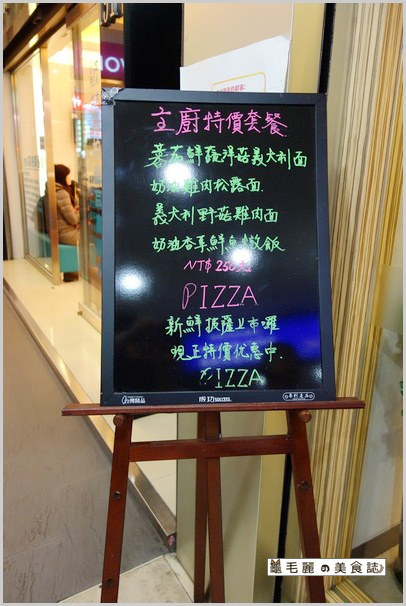 主廚特價套餐
蕃茄鮮蔬洋菇義大利面
奶油雞肉松露面
義大利野菇雞肉面
奶油杏享鮮魚燉飯
NT$ 250元
PIZZA
新鮮披薩上市囉
現正特價优惠中.
PIZZA
成功
毛麗の美食誌